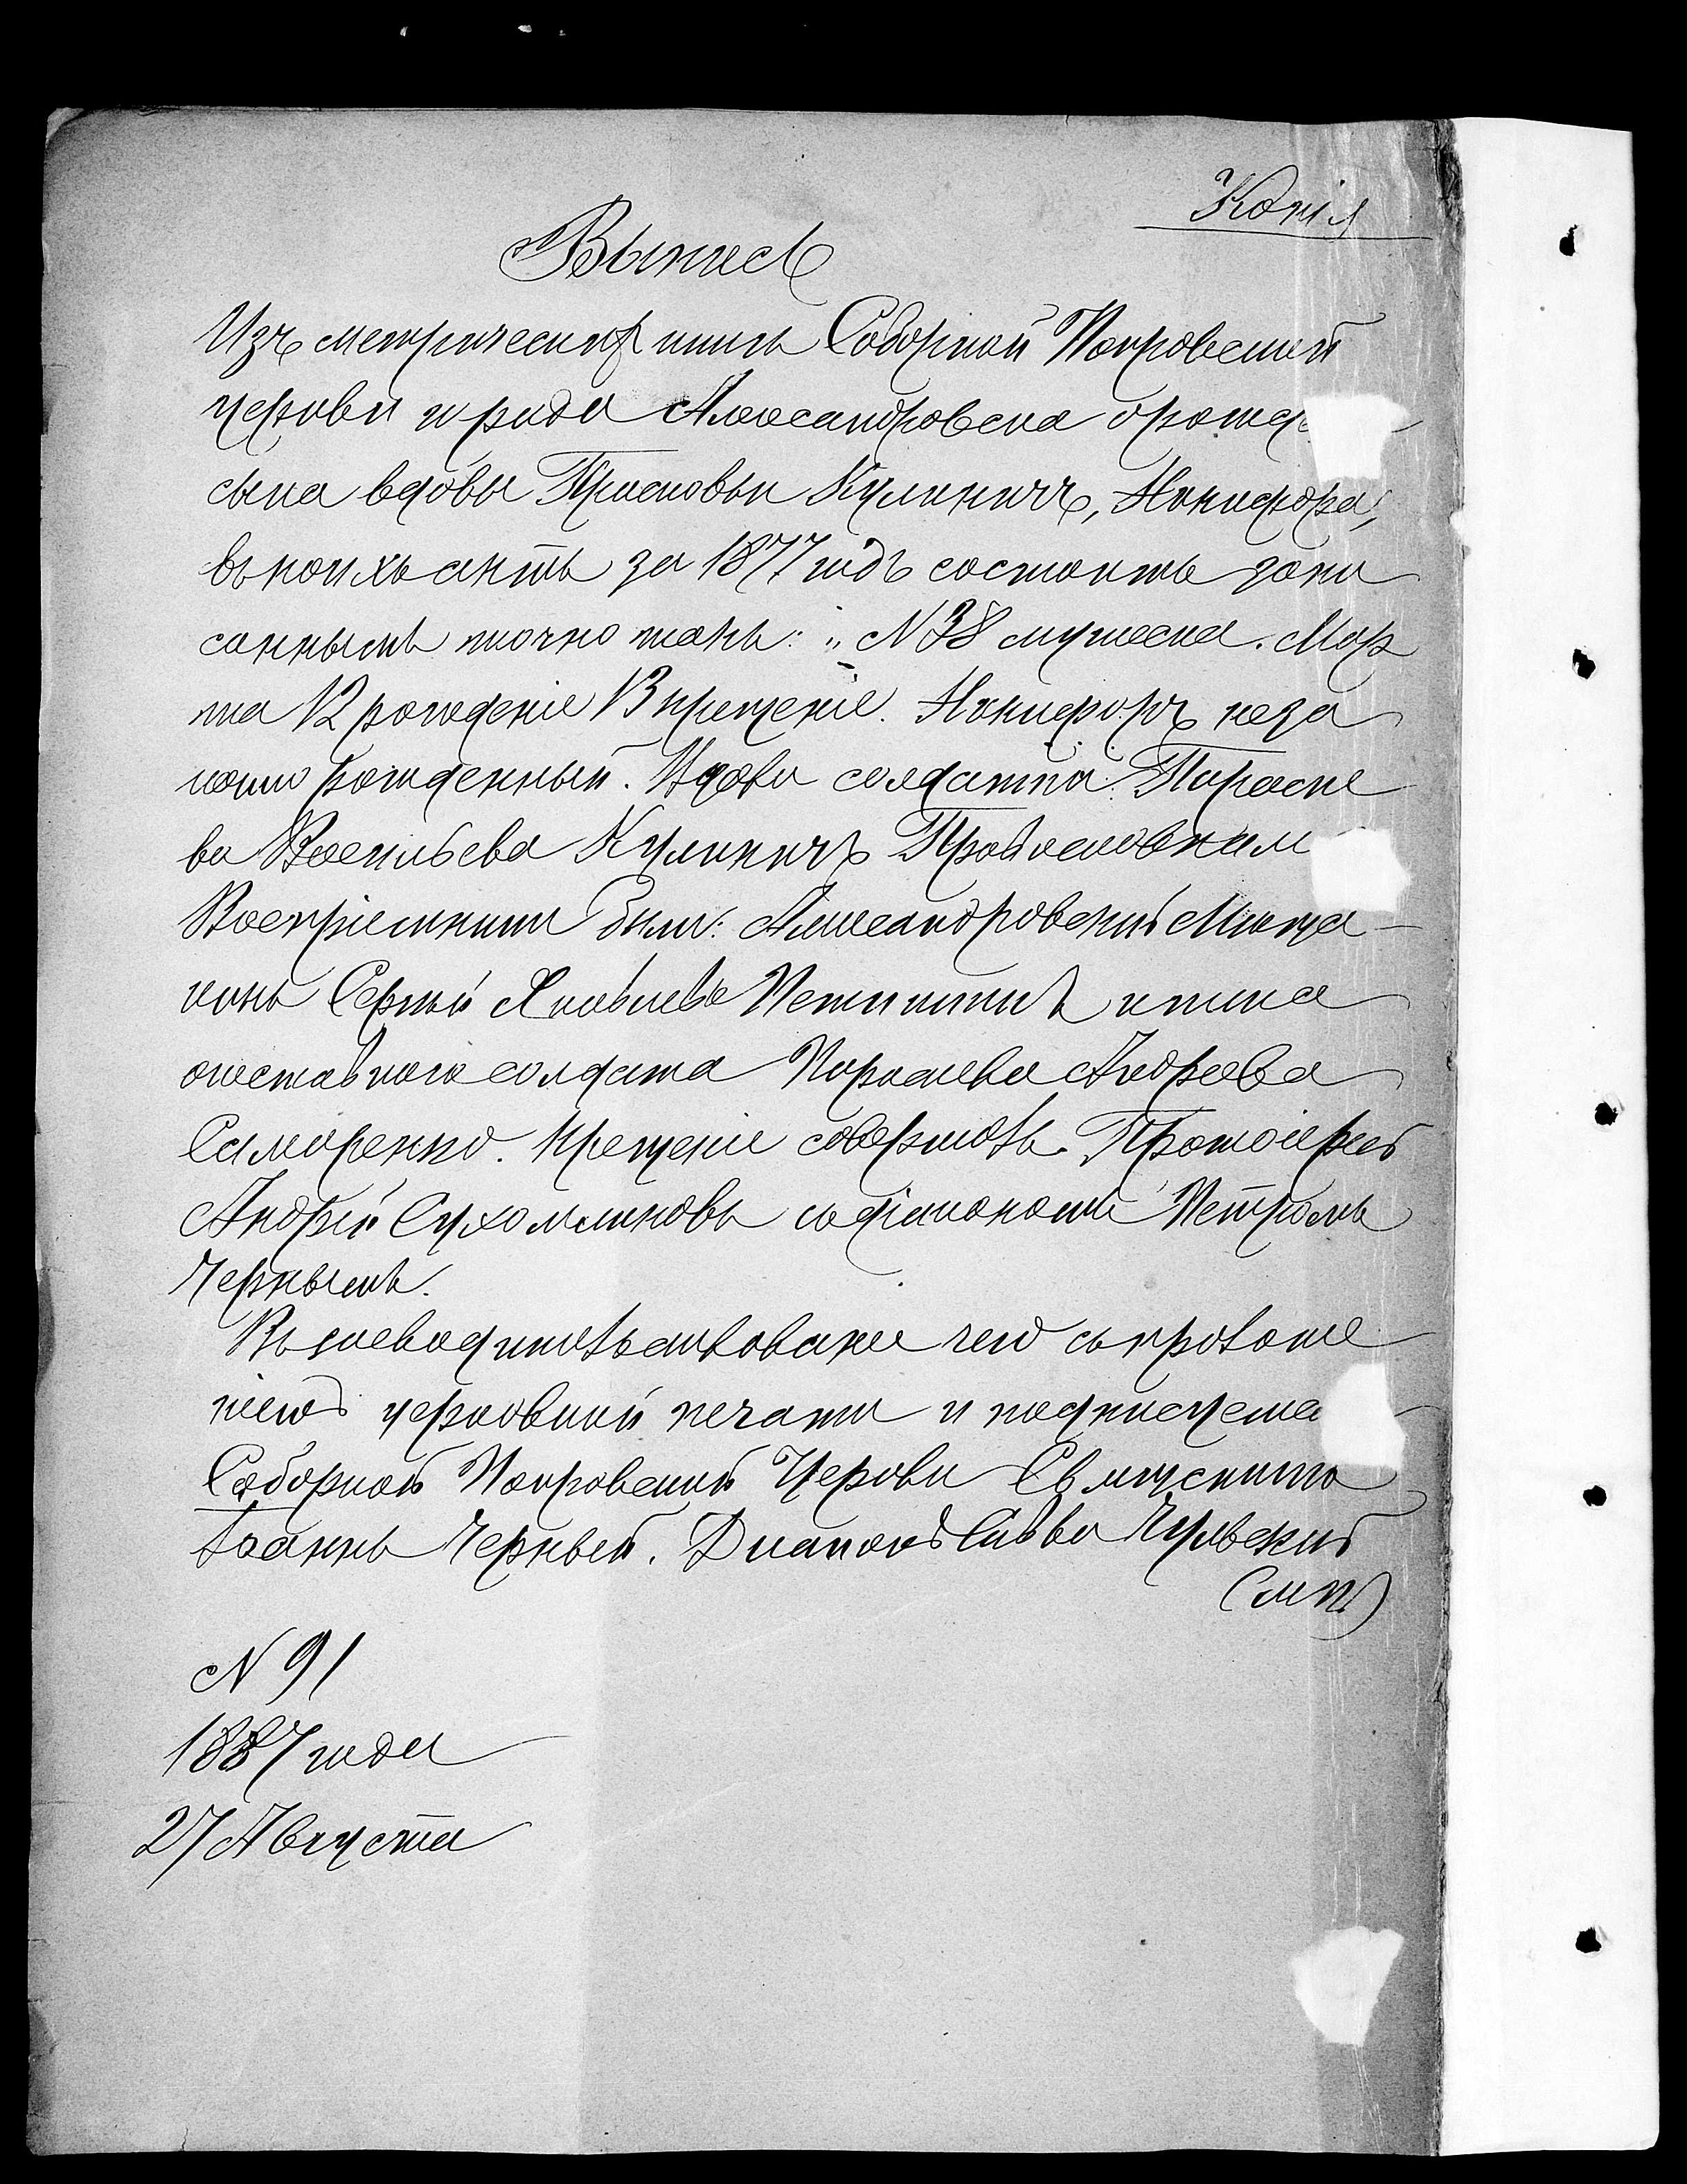 Копія
Выпись
Изъ метрическихъ книгъ Соборной Покровской
церкви города Александровска о рожде
сына вдовы Прасковьи Кулиничъ, Никифора,
въ коихъ актъ за 1877 годъ состоитъ запи
саннымъ точно такъ: „N 38 мужеска. Мар
та 12 рожденіе 13 крещеніе. Никифоръ неза
конно рожденный. Вдова солдатка Параске
ва Васильева Кулиничъ Православная
Воспріемники были: Александровскій Мѣща-
нинъ Сергѣй Яковлевъ и жена
отставного солдата Параскева Андреева
Самаренко. Крещеніе совершалъ Протоіерей
Андрей Сухомлиновъ съ діакономъ Петромъ
Чернымъ.
Въ чего съ приложе
ніемъ церковной печати и
Соборной Покровской Церкви Священникъ
Іоаннъ Черный. Диаконъ Савва Чулвскій
(МП)
N 91
1887 года
27 Августа